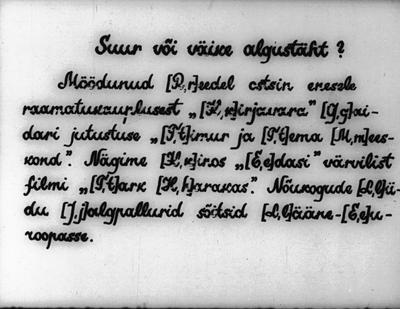 Suur või väike algustäht ?
Möödunud [R,r]eedel ostsin enesele
raamatukauplusest „[K,k]irjavara" [G,g]ai-
dari jutustuse „[T,t]imur ja [T,t]ema [M,m]ees-
kond". Nägime [K,k]inos „[E,e]dasi" värvilist
filmi „[T,t]ark [H,h]arakas". Nõukogude [L,l]ii-
du [J,j]algpallurid sõitsid [L,l]ääne-[E,e]u-
roopasse.